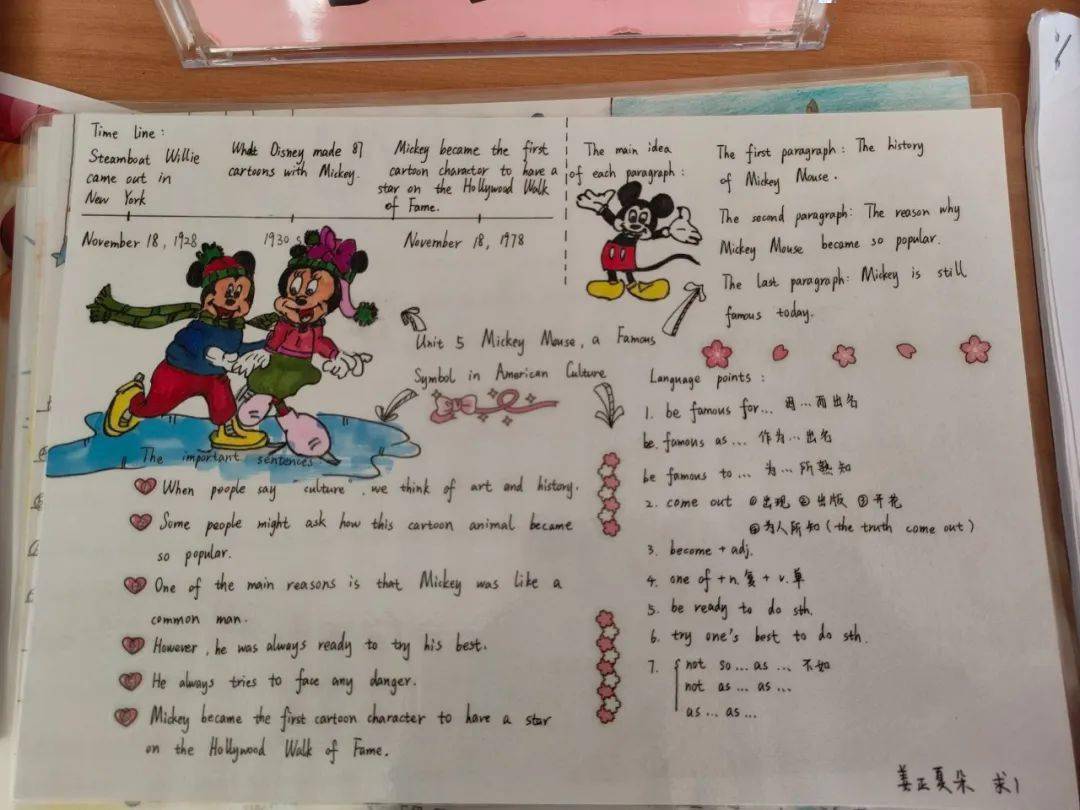 Time Line :
Steamboat Willie
came out in
New York
Disney made 87
cartoons with Mickey.
Mickey became the first
cartoon charactor to have a
star on the Hollywood Walk
of Fame.
November 18, 1928
1930 s
November 18, 1978
The main idea
of each paragraph :
The first paragraph : The history
of Mickey Mouse.
The second paragraph: The reason why
Mickey Mouse became so popular.
The last paragraph: Mickey is still
famous today.
Unit 5 Mickey Mouse, a Famous
Symbol in American Culture
The important sentences
When people say "culture", we think of art and history.
Some people might ask how this cartoon animal became
so popular.
One of the main reasons is that Mickey was like a
common man.
However, he was always ready to try his best.
He always tries to face any danger.
Mickey became the first cartoon character to have a star
on the Hollywood Walk of Fame.
Language points :
1. be famous for... 因...而出名
be famous as ... 作为...出名
be famous to ... 为...所熟知
2. come out ①出现 ②出版 ③开花
④为人所知 (the truth come out)
3. become + adj.
4. one of + n.复 + v.单
5. be ready to do sth.
6. try one's best to do sth.
7. not so ... as ... 不如
not as ... as ...
as ... as ...
姜正夏朵